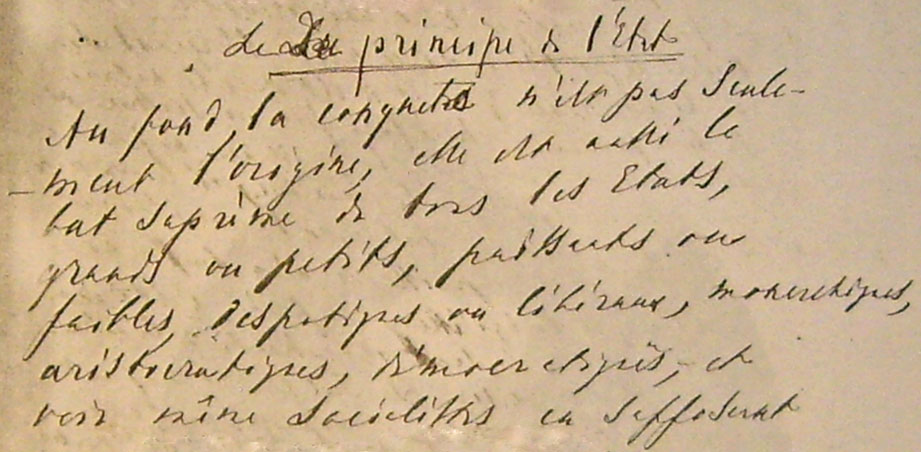 Le Du principe de l'État
Au fond, la conquete n'est pas seule-
-ment l'origine, elle est aussi le
but suprême de tous les Etats,
grands ou petits, puissants ou
faibles, despotiques ou libéraux, monarchiques,
aristocratiques, démocratiques, et
voir même socialistes en supposant